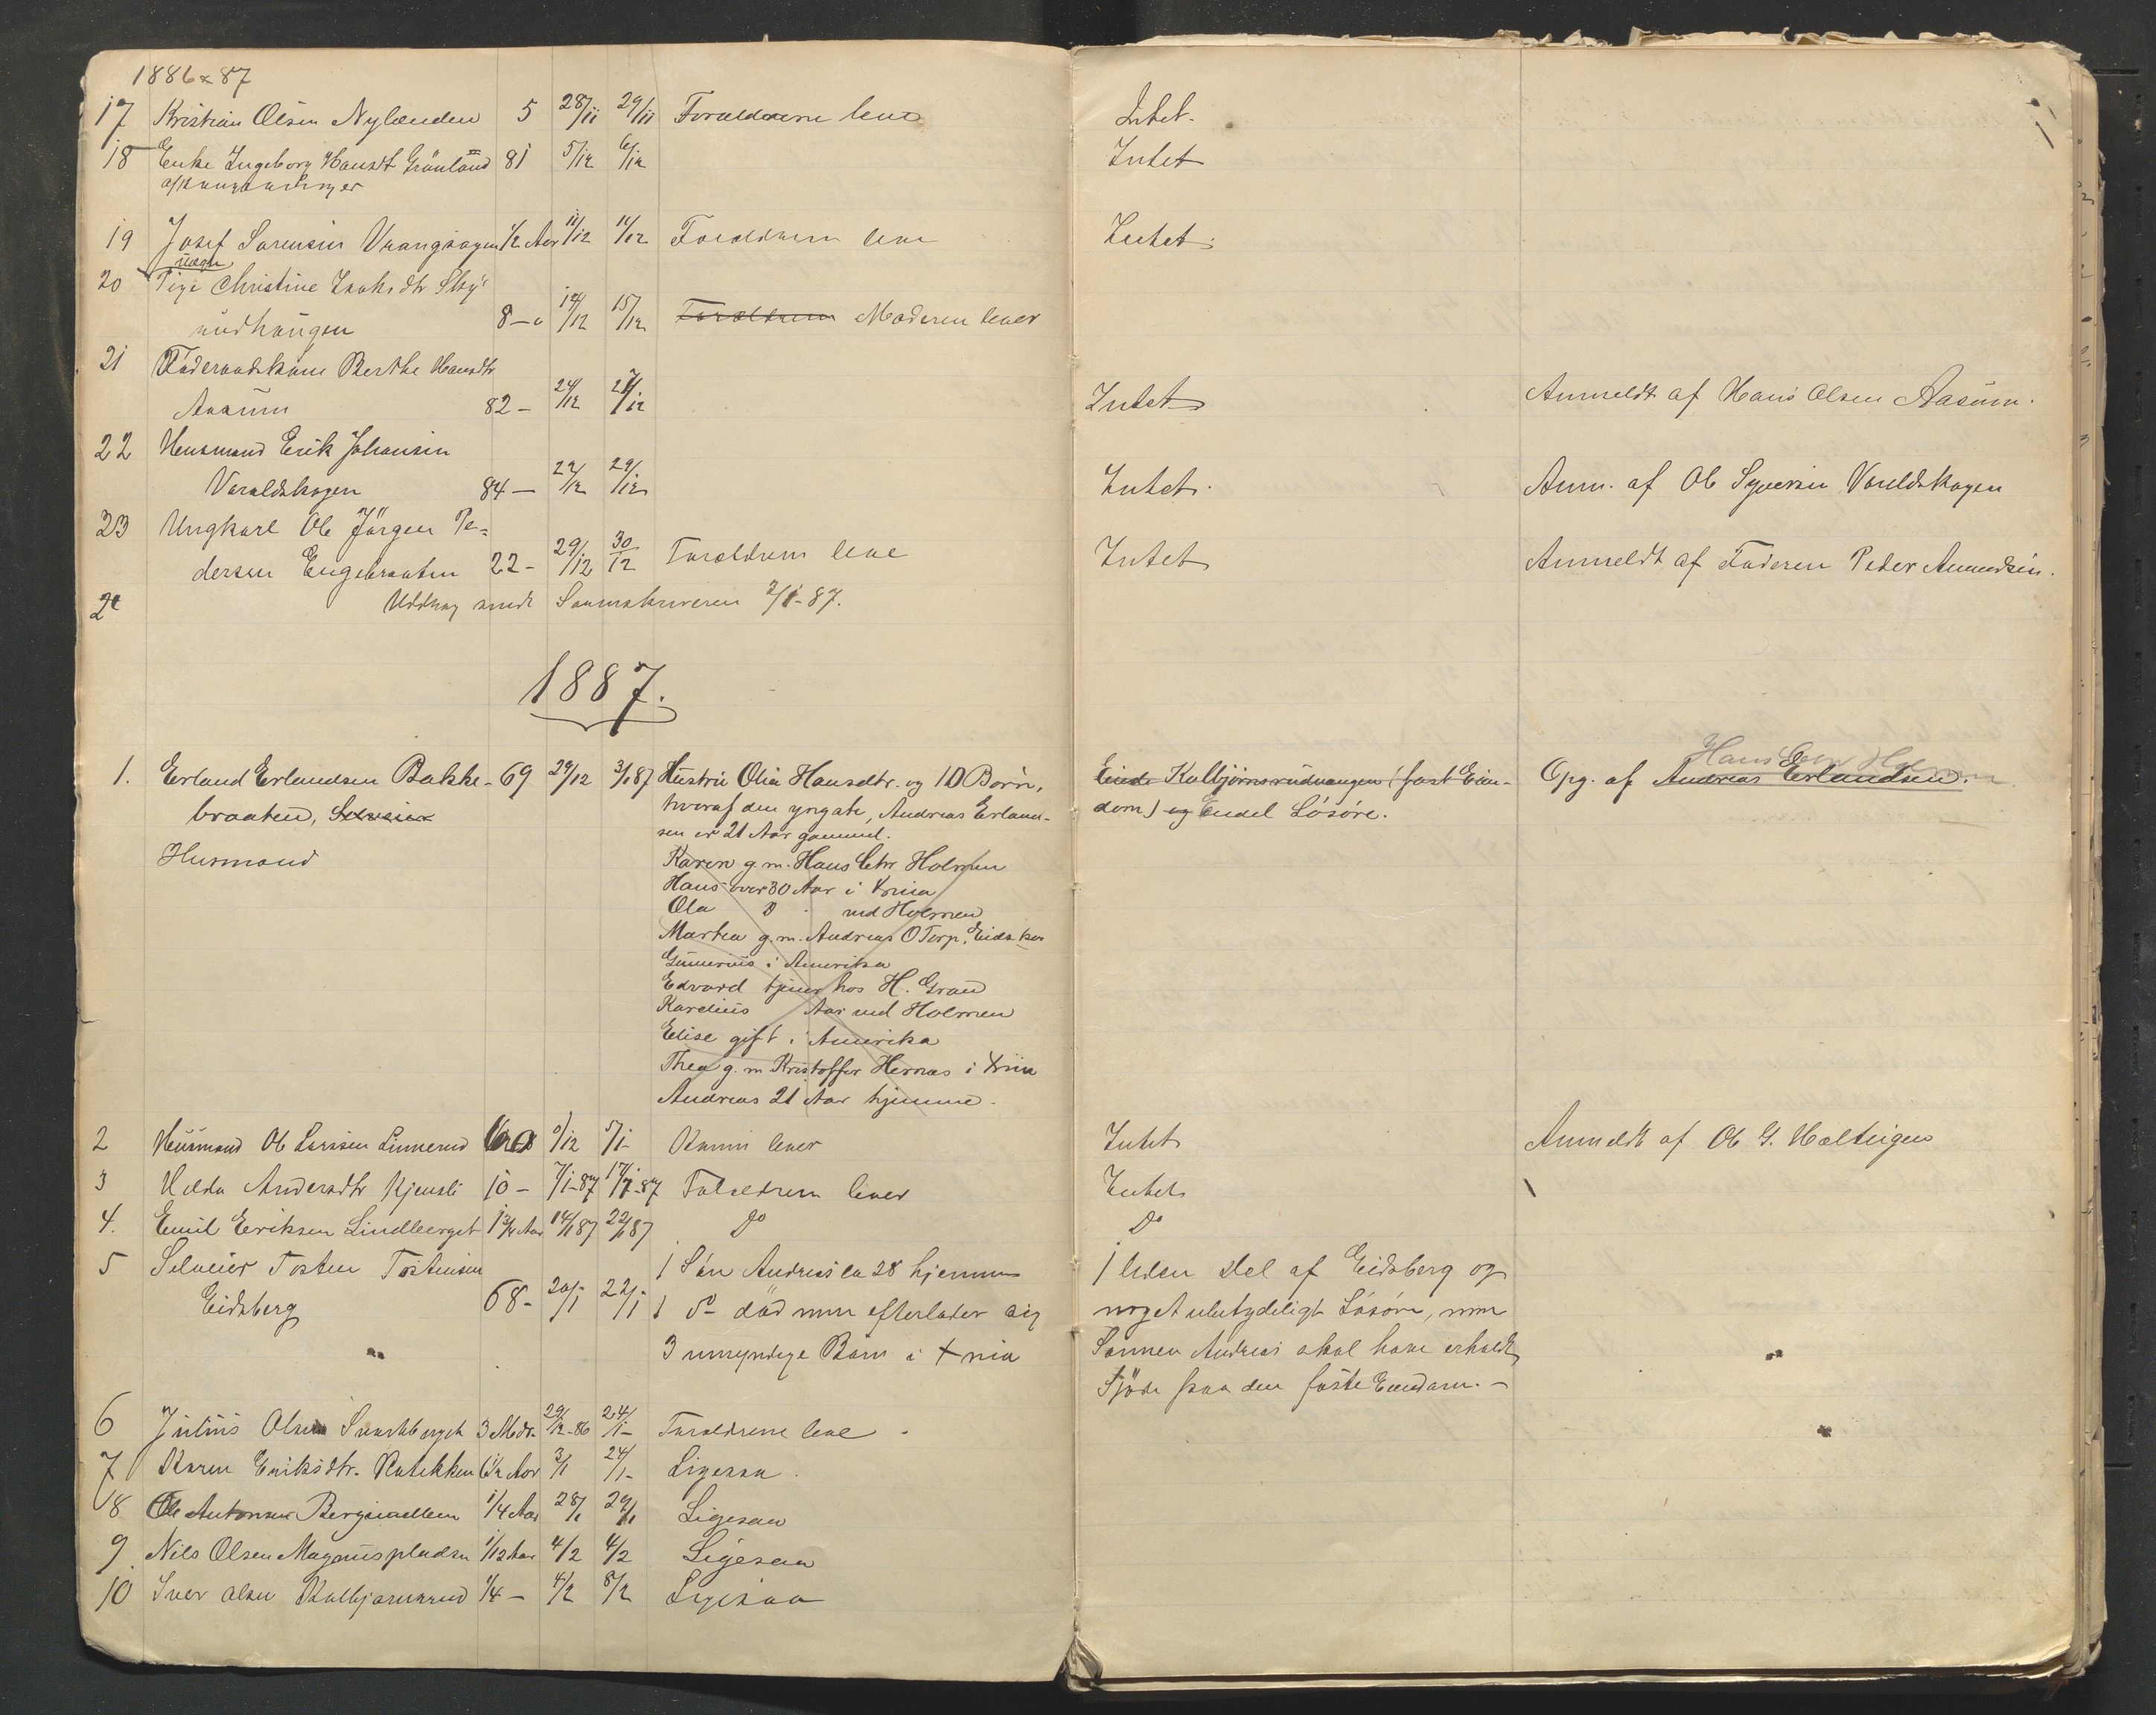 1886-87
17 Kristian Olsen Nylænden 5 28/11 29/11 Forældrene leve Intet.
18 Enke Ingeborg Hansdt Grönland 81 5/12 6/12 Intet
19 Josef Sorensen Vrangsagen 1/2 Aar 11/12 11/12 Forældrene leve Intet.
20 Pige Christine Isaksdtr
8- 14/12 15/12 Forældrene Moderen lever
21 Föderaadskone Berthe Hansdtr
Aasum 82- 24/12 27/12 Intet Anmeldt af Hans Olsen Aasum.
22 Husmand Erik Johansen
Varaldskogen 84- 22/12 29/12 Intet. Anm. af Ole Syversen Varaldskogen
23 Ungkarl Ole Jörgen Pe-
dersen Engebraaten 22- 29/12 30/12 Forældrene leve Intet Anmeldt af Faderen Peder Amundsen.
24 Uddrag sendt Sorenskriveren 2/1-87.
1887.
Hans Chr Holmen
1. Erland Erlandsen Bakke- 69 29/12 3/1 87 Hustru Olia Hansdtr. og 10 Börn, Eiede Kolbjörnsrudvangen (fast Eien- Opg. af Andreas Erlandsen.
braaten, Selveier hvoraf den yngste, Andreas Erland- dom) og Endel Lösöre.
sen er 21 Aar gammel.
Husmand Karen g. m. Hans Chr Holmen
Hans over 30 Aar i Xnia
Ola D ved Holmen
Martea g. m. Andreas O Torp, Eidskog
Gunerius i Amerika
Edvard tjener hos H. Grau
Karelius Aar ved Holmen
Elise gift i Amerika
Thea g. m Kristoffer Hernæs i Xnia
Andreas 21 Aar hjemme.
2 Husmand Ole Larsen Linnerud /12 5/1- Konen lever Intet Anmeldt af Ole G. Holteigen
3 Hilda Andersdtr Kjensli 10- 7/1-87 17/1-87 Forældrene lever Intet
4. Emil Eriksen Lindberget 1 3/4 Aar 14/1 87 22/1 87 Do Do
5 Selveier Tosten Tostensen 1 Sön Andreas ca 28 hjemme 1 liden Del af Eidsberg og
Eidsberg 68- 20/1 22/1 1 do död men efterlader sig noget ubetydeligt Lösöre, men
3 umyndige Börn i Xnia Sönnen Andreas skal have erholdt
Skjöde paa den faste Eiendom.-
6 Julius Olsen Svartberget 3 Mdr. 29/12-86 24/1- Forældrene leve
7 Karen Eriksdtr. Aar 3/1 24/1- Ligesaa.
8 Ole Antonsen 1/4 Aar 28/1 29/1 Ligesaa
9. Nils Olsen Magnuspladsen 1/12 Aar 4/2 4/2 Ligesaa
10 Iver Olsen Kolbjørnsrud 1/4 - 4/2 8/2 Ligesaa